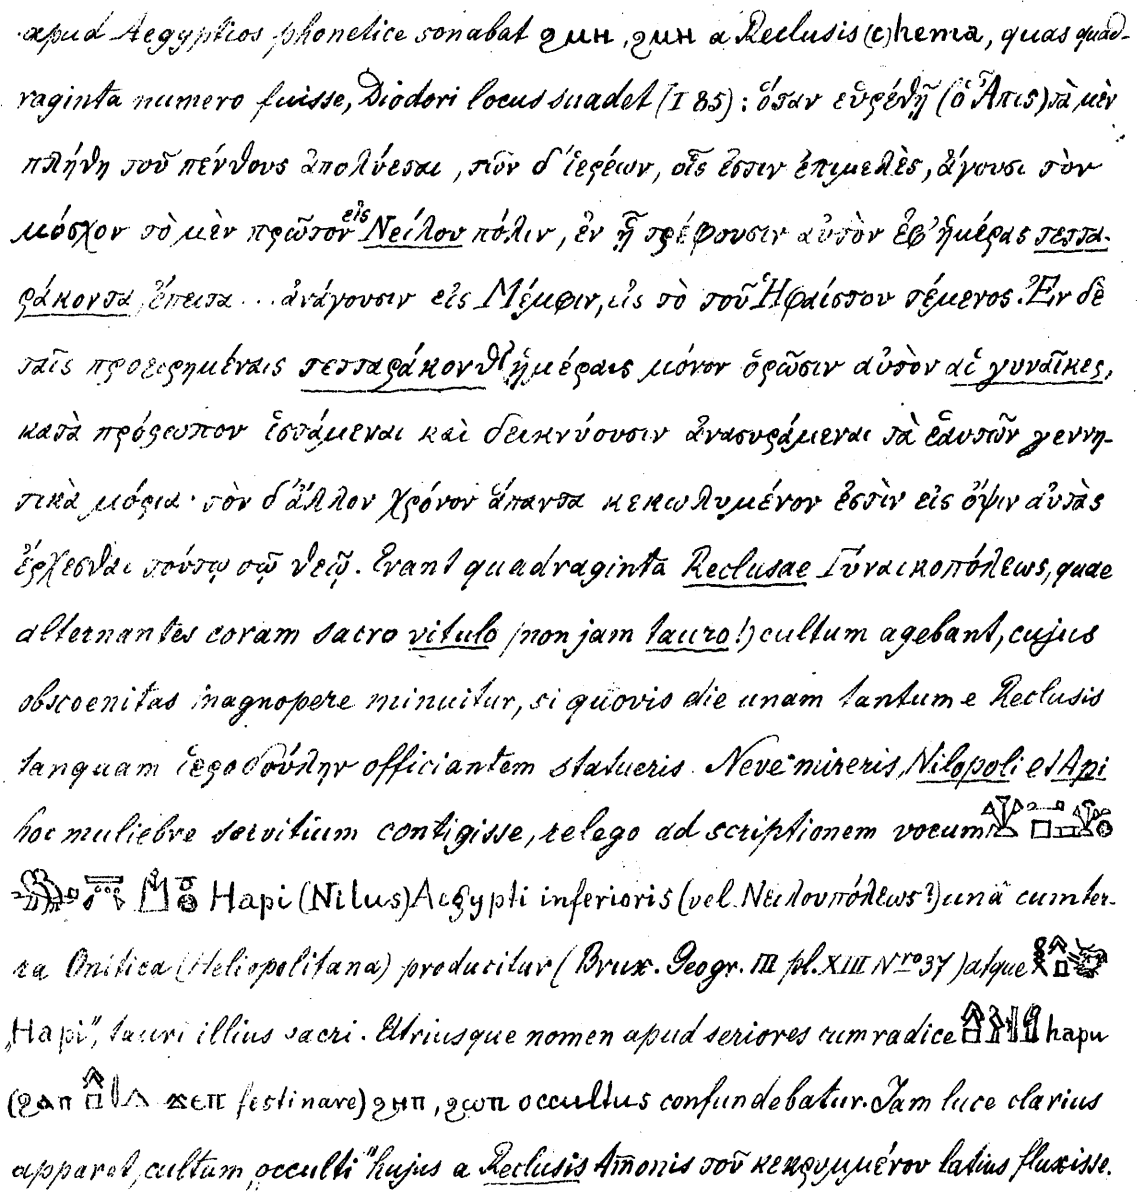 apud Aegyptios phonetice sonabat ϩⲙⲏ, ϩⲙⲏ a Reclusis (c)hema, quas quad-
raginta numero fuisse, Diodori locus suadet (I 85): ὅταν εὑρέθῇ (ὁ Ἆπις) τὰ μὲν
πλήθη τοῦ πένθους ἀπολύεται, τῶν δ' ἱερέων, οἷς ἐστιν ἐπιμελὲς, ἄγουσι τὸν
μόσχον τὸ μὲν πρῶτον εἰς Νείλου πόλιν, ἐν ᾗ τρέφουσιν αὐτὸν ἐφ' ἡμέρας τεττα-
ράκοντα, ἔπειτα ... ἀνάγουσιν εἰς Μέμφιν, εἰς τὸ τοῦ Ἡφαίστου τέμενος. Ἐν δὲ
ταῖς προειρημέναις τετταράκονθ' ἡμέραις μόνον ὁρῶσιν αὐτὸν αἱ γυναῖκες,
κατὰ πρόσωπον ἱστάμεναι καὶ δεικνύουσιν ἀνασυράμεναι τὰ ἑαυτῶν γεννη-
τικὰ μόρια· τὸν δ' ἄλλον χρόνον ἅπαντα κεκωλυμένον ἐστὶν εἰς ὄψιν αὐτὰς
ἔρχεσθαι τούτῳ τῷ θεῷ. Erant quadraginta Reclusae Γύναικοπόλεως, quae
alternantes coram sacro vitulo (non jam tauro!) cultum agebant, cujus
obscoenitas magnopere minuitur, si quovis die unam tantum e Reclusis
tanquam ἱεροδούλην officiantem statueris. Neve mireris, Nilopoli et Api
hoc muliebre servitium contigisse, relego ad scriptionem vocum
Hapi (Nilus) Aegypti inferioris (vel Νειλουπόλεως?) unâ cum ter-
ra Onitica (Heliopolitana) producitur (Brux. Geogr. III pl. XIII Nro 37) atque
„Hapi", tauri illius sacri. Utriusque nomen apud seriores cum radice hapu
(ϩⲁⲡ ϫⲉⲡ festinare) ϩⲏⲡ, ϩⲱⲡ occultus confundebatur. Jam luce clarius
apparet, cultum „occulti" hujus a Reclusis Amonis τοῦ κεκρυμμένου latius fluxisse.